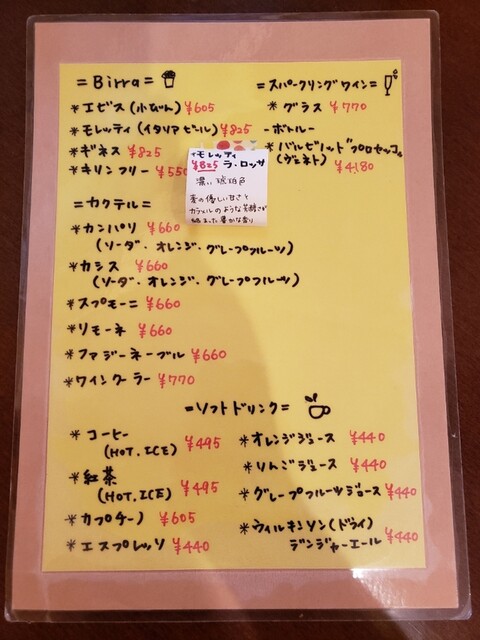 = Birra =
* エビス (小びん) ¥605
* モレッティ (イタリアビール) ¥825
* ギネス ¥825
* キリンフリー ¥550
モレッティ
¥825 ラ・ロッサ
濃い琥珀色
麦の優しい甘さと
カラメルのような芳醇さが
始まった豊かな香り
= カクテル =
* カンパリ ¥660
(ソーダ・オレンジ・グレープフルーツ)
* カシス ¥660
(ソーダ・オレンジ・グレープフルーツ)
* スプモーニ ¥660
* リモーネ ¥660
* ファジーネーブル ¥660
* ワインクーラー ¥770
= スパークリングワイン =
* グラス ¥770
- ボトル -
* バルビノッド プロセッコ
(ヴェネト) ¥4180
= ソフトドリンク =
* コーヒー
(HOT, ICE) ¥495
* 紅茶
(HOT, ICE) ¥495
* カプチーノ ¥605
* エスプレッソ ¥440
* オレンジジュース ¥440
* りんごジュース ¥440
* グレープフルーツジュース ¥440
* ウィルキンソン (ドライ)
ジンジャーエール ¥440